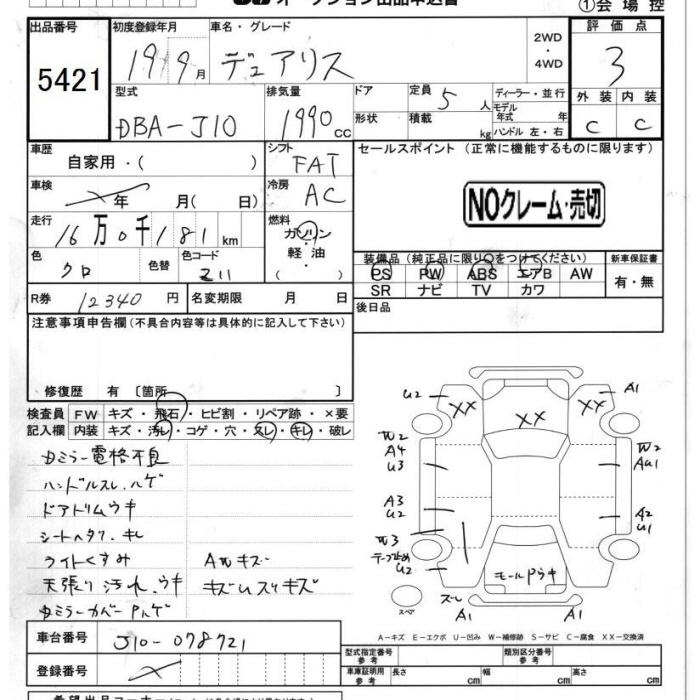 オークション出品申込書
①会場控
出品番号 5421
初度登録年月 19 9月
車名・グレード デュアリス
2WD・4WD
評価点 3
外装 C 内装 C
型式 DBA-J10
排気量 1990cc
ドア 形状
定員 5人 積載 kg
ディーラー・並行
モデル年式 年
ハンドル 左・右
車歴 自家用・( )
シフト FAT
セールスポイント(正常に機能するものに限ります)
NOクレーム・売切
車検 年 月( 日)
冷房 AC
走行 16万0千181km
燃料 ガソリン・軽油 ( )
色 クロ 色替 色コード Z11
装備品(純正品に限り○をつけてください) 新車保証書
PS PW ABS エアB AW 有・無
SR ナビ TV カワ
R券 12340円 名変期限 月 日
後日品
注意事項申告欄(不具合内容等は具体的に記入して下さい)
修復歴 有〔箇所 〕
検査員記入欄
FW キズ・飛石・ヒビ割・リペア跡・×要
内装 キズ・汚レ・コゲ・穴・スレ・キレ・破レ
ドミラー電格不良
ハンドルスレ、ハゲ
ドアトリムウキ
シートヘタリ、キレ
ライトくすみ
天張り汚れ、ウキ
ドミラーカバーPハゲ
Aルキズ
キズUスリキズ
U2 A1
XX XX XX
W2
A4
U3
W2
AU1
A3
U2
A2
U1
W3
テープ止め
U2
モールPウキ
ズレ
スペア
A1 A1
A-キズ E-エクボ U-凹み W-補修跡 S-サビ C-腐食 XX-交換済
車台番号 J10-078721
登録番号
型式指定番号 参考 類別区分番号 参考
車庫証明用 参考 長さ cm 幅 cm 高さ cm